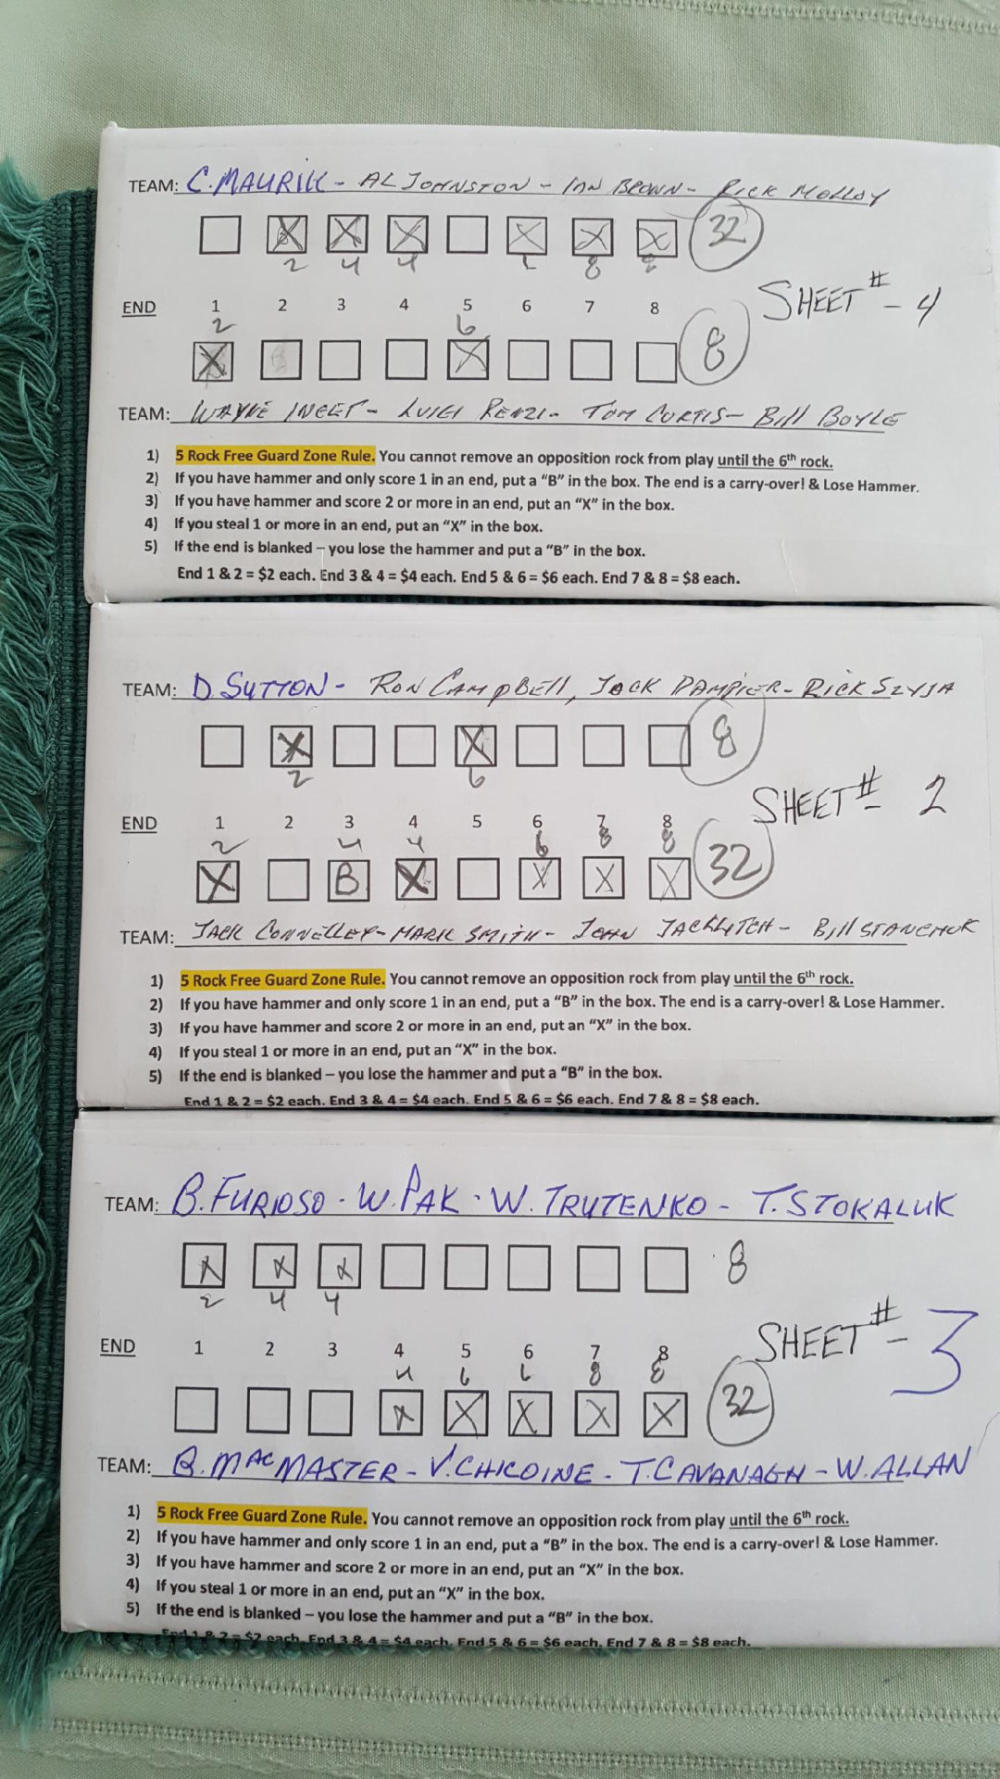 TEAM: C. MAURIK - AL JOHNSTON - IAN BROWN - RICK MOLLOY
X X X X X X 32
2 4 4 6 8 8
SHEET # - 4
END 1 2 3 4 5 6 7 8
2 6
X X 8
TEAM: WAYNE - LUIGI RENZI - TOM CURTIS - Bill BOYLE
1) 5 Rock Free Guard Zone Rule. You cannot remove an opposition rock from play until the 6th rock.
2) If you have hammer and only score 1 in an end, put a "B" in the box. The end is a carry-over! & Lose Hammer.
3) If you have hammer and score 2 or more in an end, put an "X" in the box.
4) If you steal 1 or more in an end, put an "X" in the box.
5) If the end is blanked – you lose the hammer and put a "B" in the box.
End 1 & 2 = $2 each. End 3 & 4 = $4 each. End 5 & 6 = $6 each. End 7 & 8 = $8 each.
TEAM: D. SUTTON - RON CAMPBELL, JACK DAMPIER - RICK SZYJA
X X 8
2 6
SHEET # 2
END 1 2 3 4 5 6 7 8
2 4 4 6 8 8
X B X X X X 32
TEAM: JACK CONNELLEY - MARK SMITH - JOHN JACKLITCH - Bill STANCHUK
1) 5 Rock Free Guard Zone Rule. You cannot remove an opposition rock from play until the 6th rock.
2) If you have hammer and only score 1 in an end, put a "B" in the box. The end is a carry-over! & Lose Hammer.
3) If you have hammer and score 2 or more in an end, put an "X" in the box.
4) If you steal 1 or more in an end, put an "X" in the box.
5) If the end is blanked – you lose the hammer and put a "B" in the box.
End 1 & 2 = $2 each. End 3 & 4 = $4 each. End 5 & 6 = $6 each. End 7 & 8 = $8 each.
TEAM: B. FURIOSO - W. PAK - W. TRUTENKO - T. STOKALUK
X X X 8
2 4 4
SHEET # - 3
END 1 2 3 4 5 6 7 8
4 6 6 8 8
X X X X X 32
TEAM: B. MACMASTER - V. CHICOINE - T. CAVANAGH - W. ALLAN
1) 5 Rock Free Guard Zone Rule. You cannot remove an opposition rock from play until the 6th rock.
2) If you have hammer and only score 1 in an end, put a "B" in the box. The end is a carry-over! & Lose Hammer.
3) If you have hammer and score 2 or more in an end, put an "X" in the box.
4) If you steal 1 or more in an end, put an "X" in the box.
5) If the end is blanked – you lose the hammer and put a "B" in the box.
End 1 & 2 = $2 each. End 3 & 4 = $4 each. End 5 & 6 = $6 each. End 7 & 8 = $8 each.